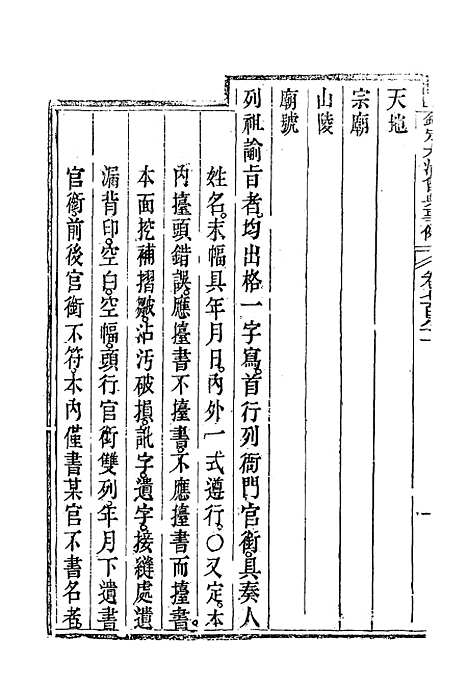 欽定大清會典事例 卷七百八十一 一
天地
宗廟
山陵
廟號
列祖諭旨者均出格一字寫首行列衙門官銜具奏人
姓名末幅具年月日內外一式遵行○又定本
內擡頭錯誤應擡書不擡書不應擡書而擡書
本面挖補摺皺沾汚破損訛字遺字接縫處遺
漏背印空白空幅頭行官銜雙列年月下遺書
官銜前後官銜不符本內僅書某官不書名者